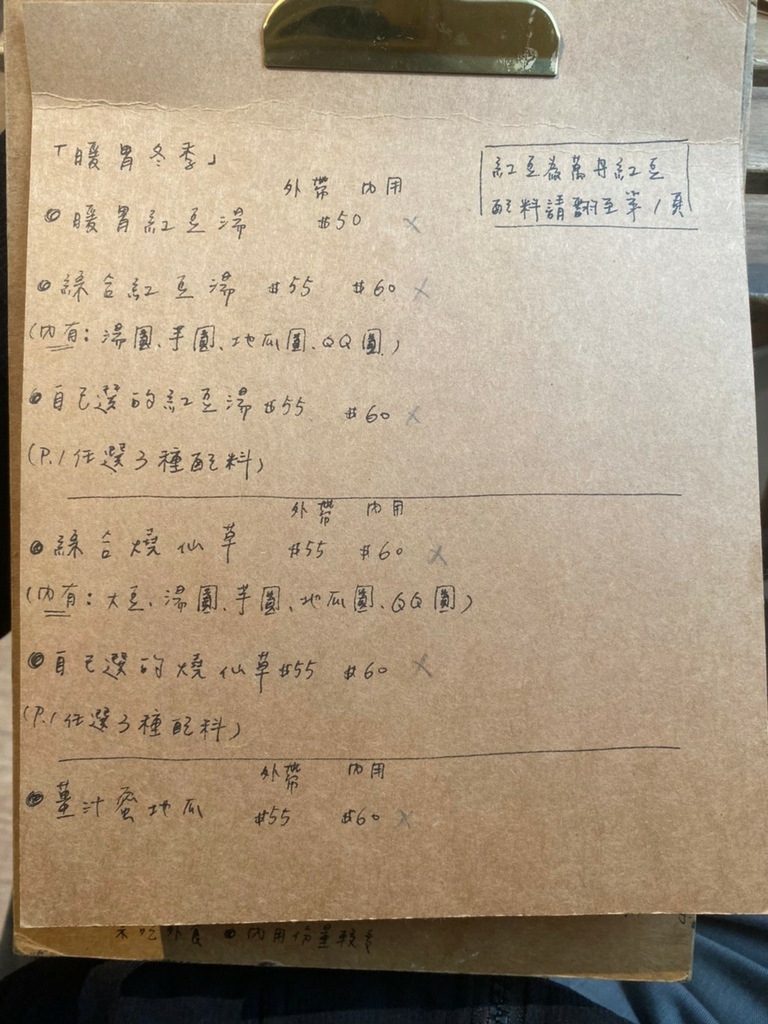 「暖胃冬季」
紅豆為萬丹紅豆
配料請翻至第1頁
外帶 內用
暖胃紅豆湯 $50 X
綜合紅豆湯 $55 $60 X
(內有:湯圓、芋圓、地瓜圓、QQ圓)
自己選的紅豆湯 $55 $60 X
(P.1任選3種配料)
外帶 內用
綜合燒仙草 $55 $60 X
(內有:大豆、湯圓、芋圓、地瓜圓、QQ圓)
自己選的燒仙草 $55 $60 X
(P.1任選3種配料)
外帶 內用
薑汁蜜地瓜 $55 $60 X
內用份量較多